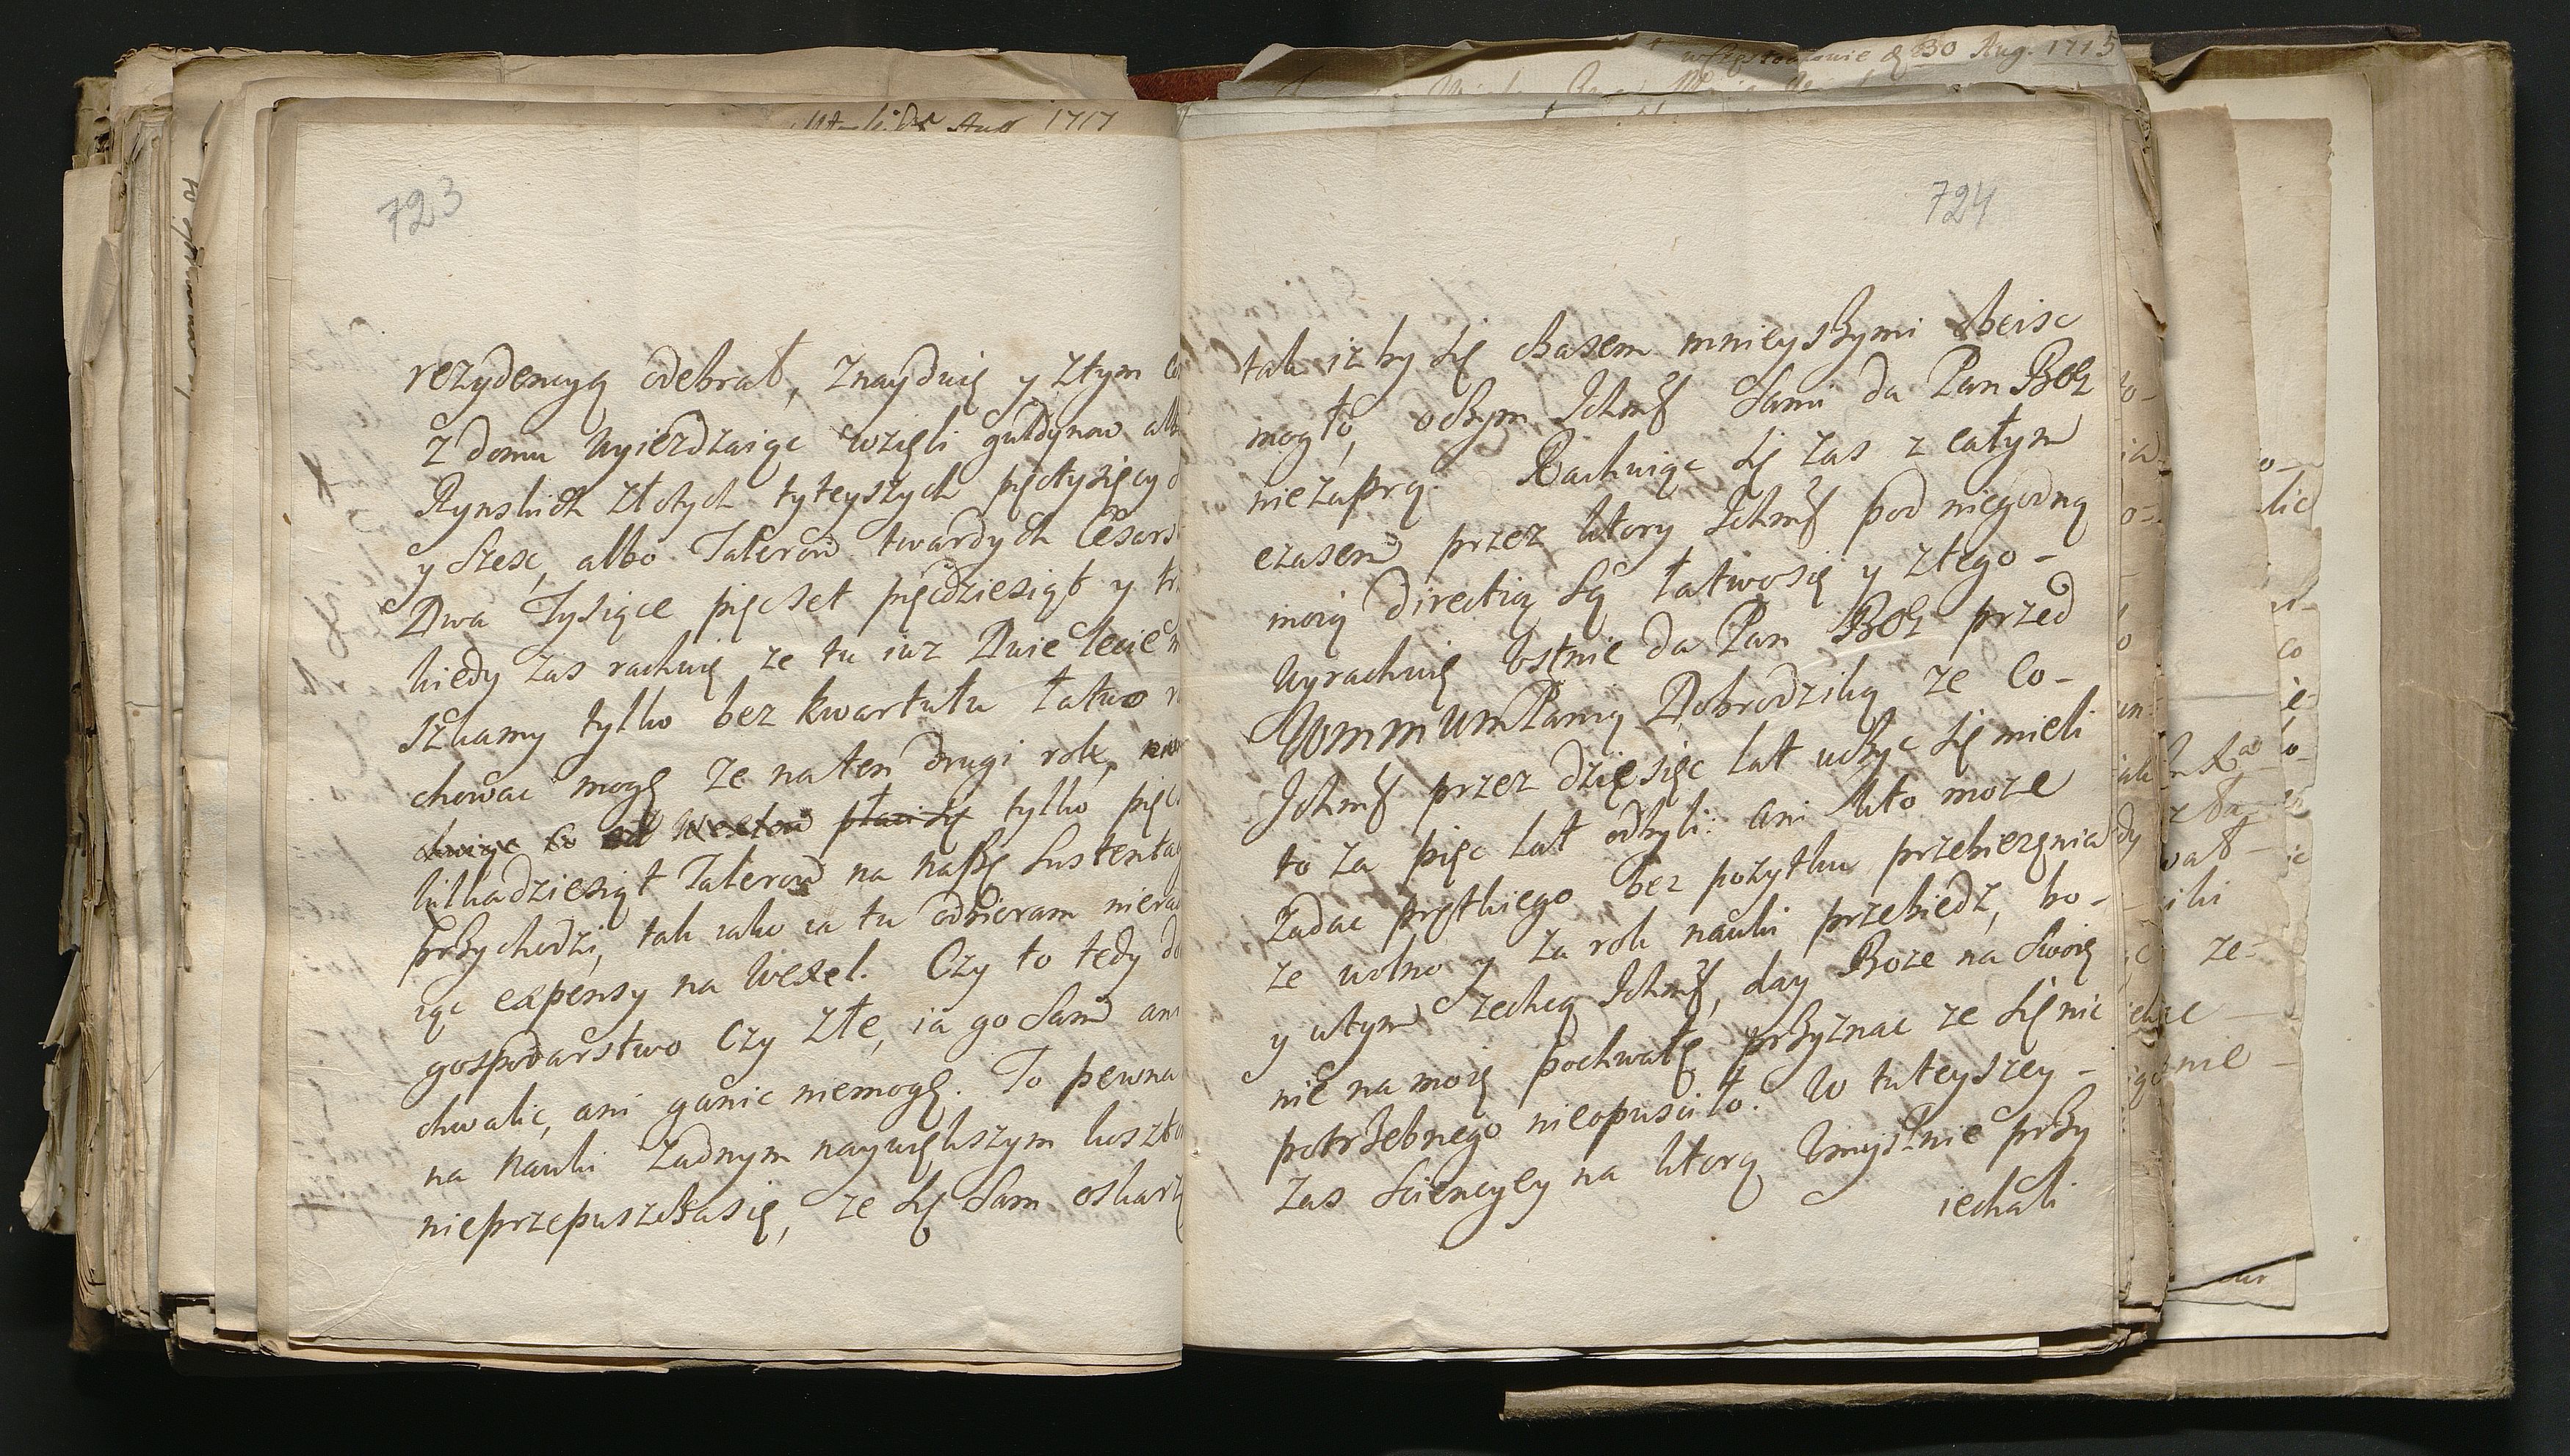 1717
723
rezydencyą odebrał, znayduię y ztym
z domu wyiezdzaiąc wzięli guldynow
Rynskich złotych tyteyszych pięctysięcy
y szesc, albo Talerow twardych Cesars
Dwa Tysiące pięcset pięcdziesiąt y
kiedy zas rachuię ze tu iuz Dwie lecie
szkamy tylko bez kwartału łatwo
chowac mogę ze naten drugi rok,
tylko pięc
kilkadziesiąt Talerow na naszę sustenta
przychodzi, tak iako ia tu odbieram niera
iąc expensy na Wexel. Czy to tedy do
gospodarstwo Czy złe, ia go sam ani
chwalic, ani ganic niemogę. To pewna
na Nauki żadnym naywiększym koszto
nieprzepuszcza się, ze się sam oskarż
w Częstochowie d 30 Aug. 1715
724
tak iz by się czasem mnieyszymi obeisc
mogło, oczym Ichmś sami da Pan Bog
niezaprą. Rachuiąc się zas z całym
czasem przez ktory Ichmś pod niegodną
moią directią są łatwosię y ztego-
wyrachuię ustnie da Pan Bog przed
Panią Dobrodziką ze Co-
Ichmś przez dzięsięc lat uczyc się mieli
to za pięc lat odbyli: ani kto moze
żadac prętkiego bez pożytku przebierznia
ze wolno y za rok nauki przebiedz, bo-
y wtym zechcą Ichmś, day Boze na swoię
nie na moię pochwałę przyznac ze się nic
potrzebnego nieopusciło. W tuteyszey-
zas Sciencyey na ktorą umyslnie przy
iechali